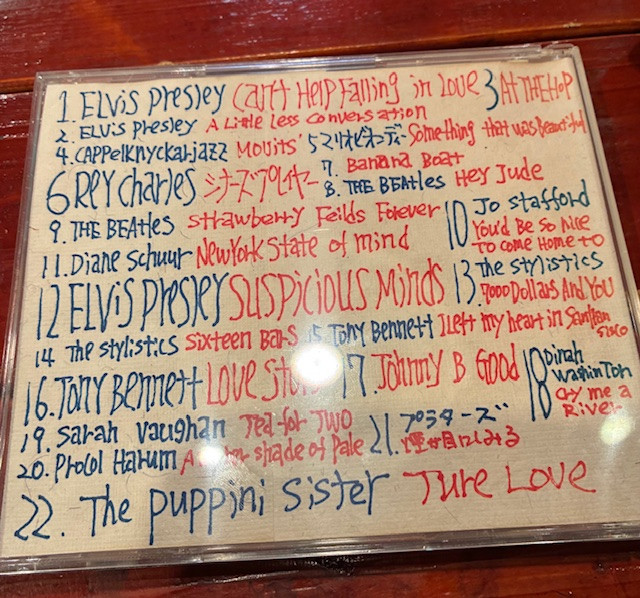 1. ELVIS Presley Can't Help Falling in Love 3 AT THE HOP
2. ELVIS Presley A Little less conversation
4. CAPPELKNYCKARJAZZ MOVITS' 5 マリオビオンディー Something that was Beautiful
6 REY CHARLES シナーズプレイヤー 7. Banana Boat
8. THE BEAtles Hey Jude
9. THE BEAtles Strawberry Feilds Forever 10 Jo Stafford You'd Be So Nice TO COME HOME TO
11. Diane Schuur NewYork State of mind
12 ELVIS PRESLEY SUSPICIOUS MINDS 13. The Stylistics 7000 Dollars And You
14 The Stylistics Sixteen Bars 15 Tony Bennett I Left my heart in SanFran SISCO
16. Tony Bennett LOVE 17. Johnny B Good 18 Dinah Washinton Cry me a River
19. Sarah Vaughan Tea for Two
20. Procol Harum A shade of Pale 21. プラターズ 煙が目にしみる
22. The Puppini Sister Ture Love